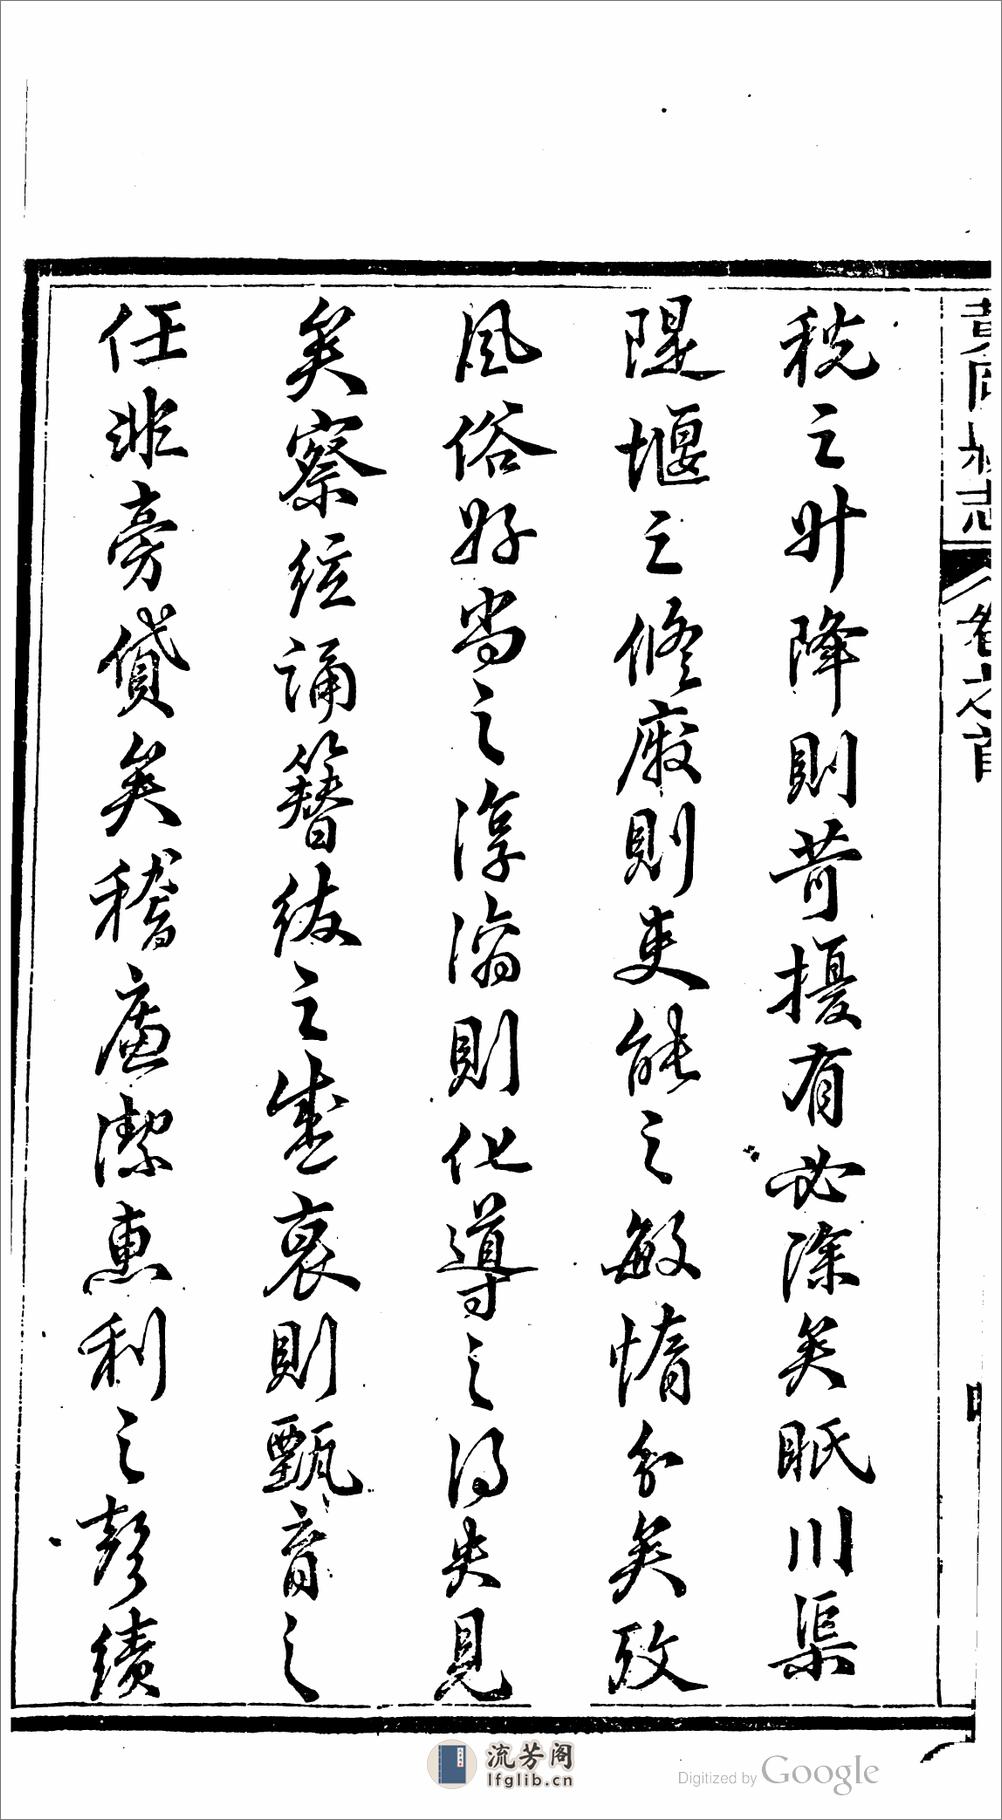 稅之升降則苛擾有必除矣眂川渠
隄堰之修廢則吏能之敏惰分矣攷
風俗好尚之淳漓則化導之得失見
矣察絃誦簪紱之盛衰則甄育之
任非旁貸矣稽廉潔惠利之彰績
卷之首
流芳阁
lfglib.cn
Digitized by Google